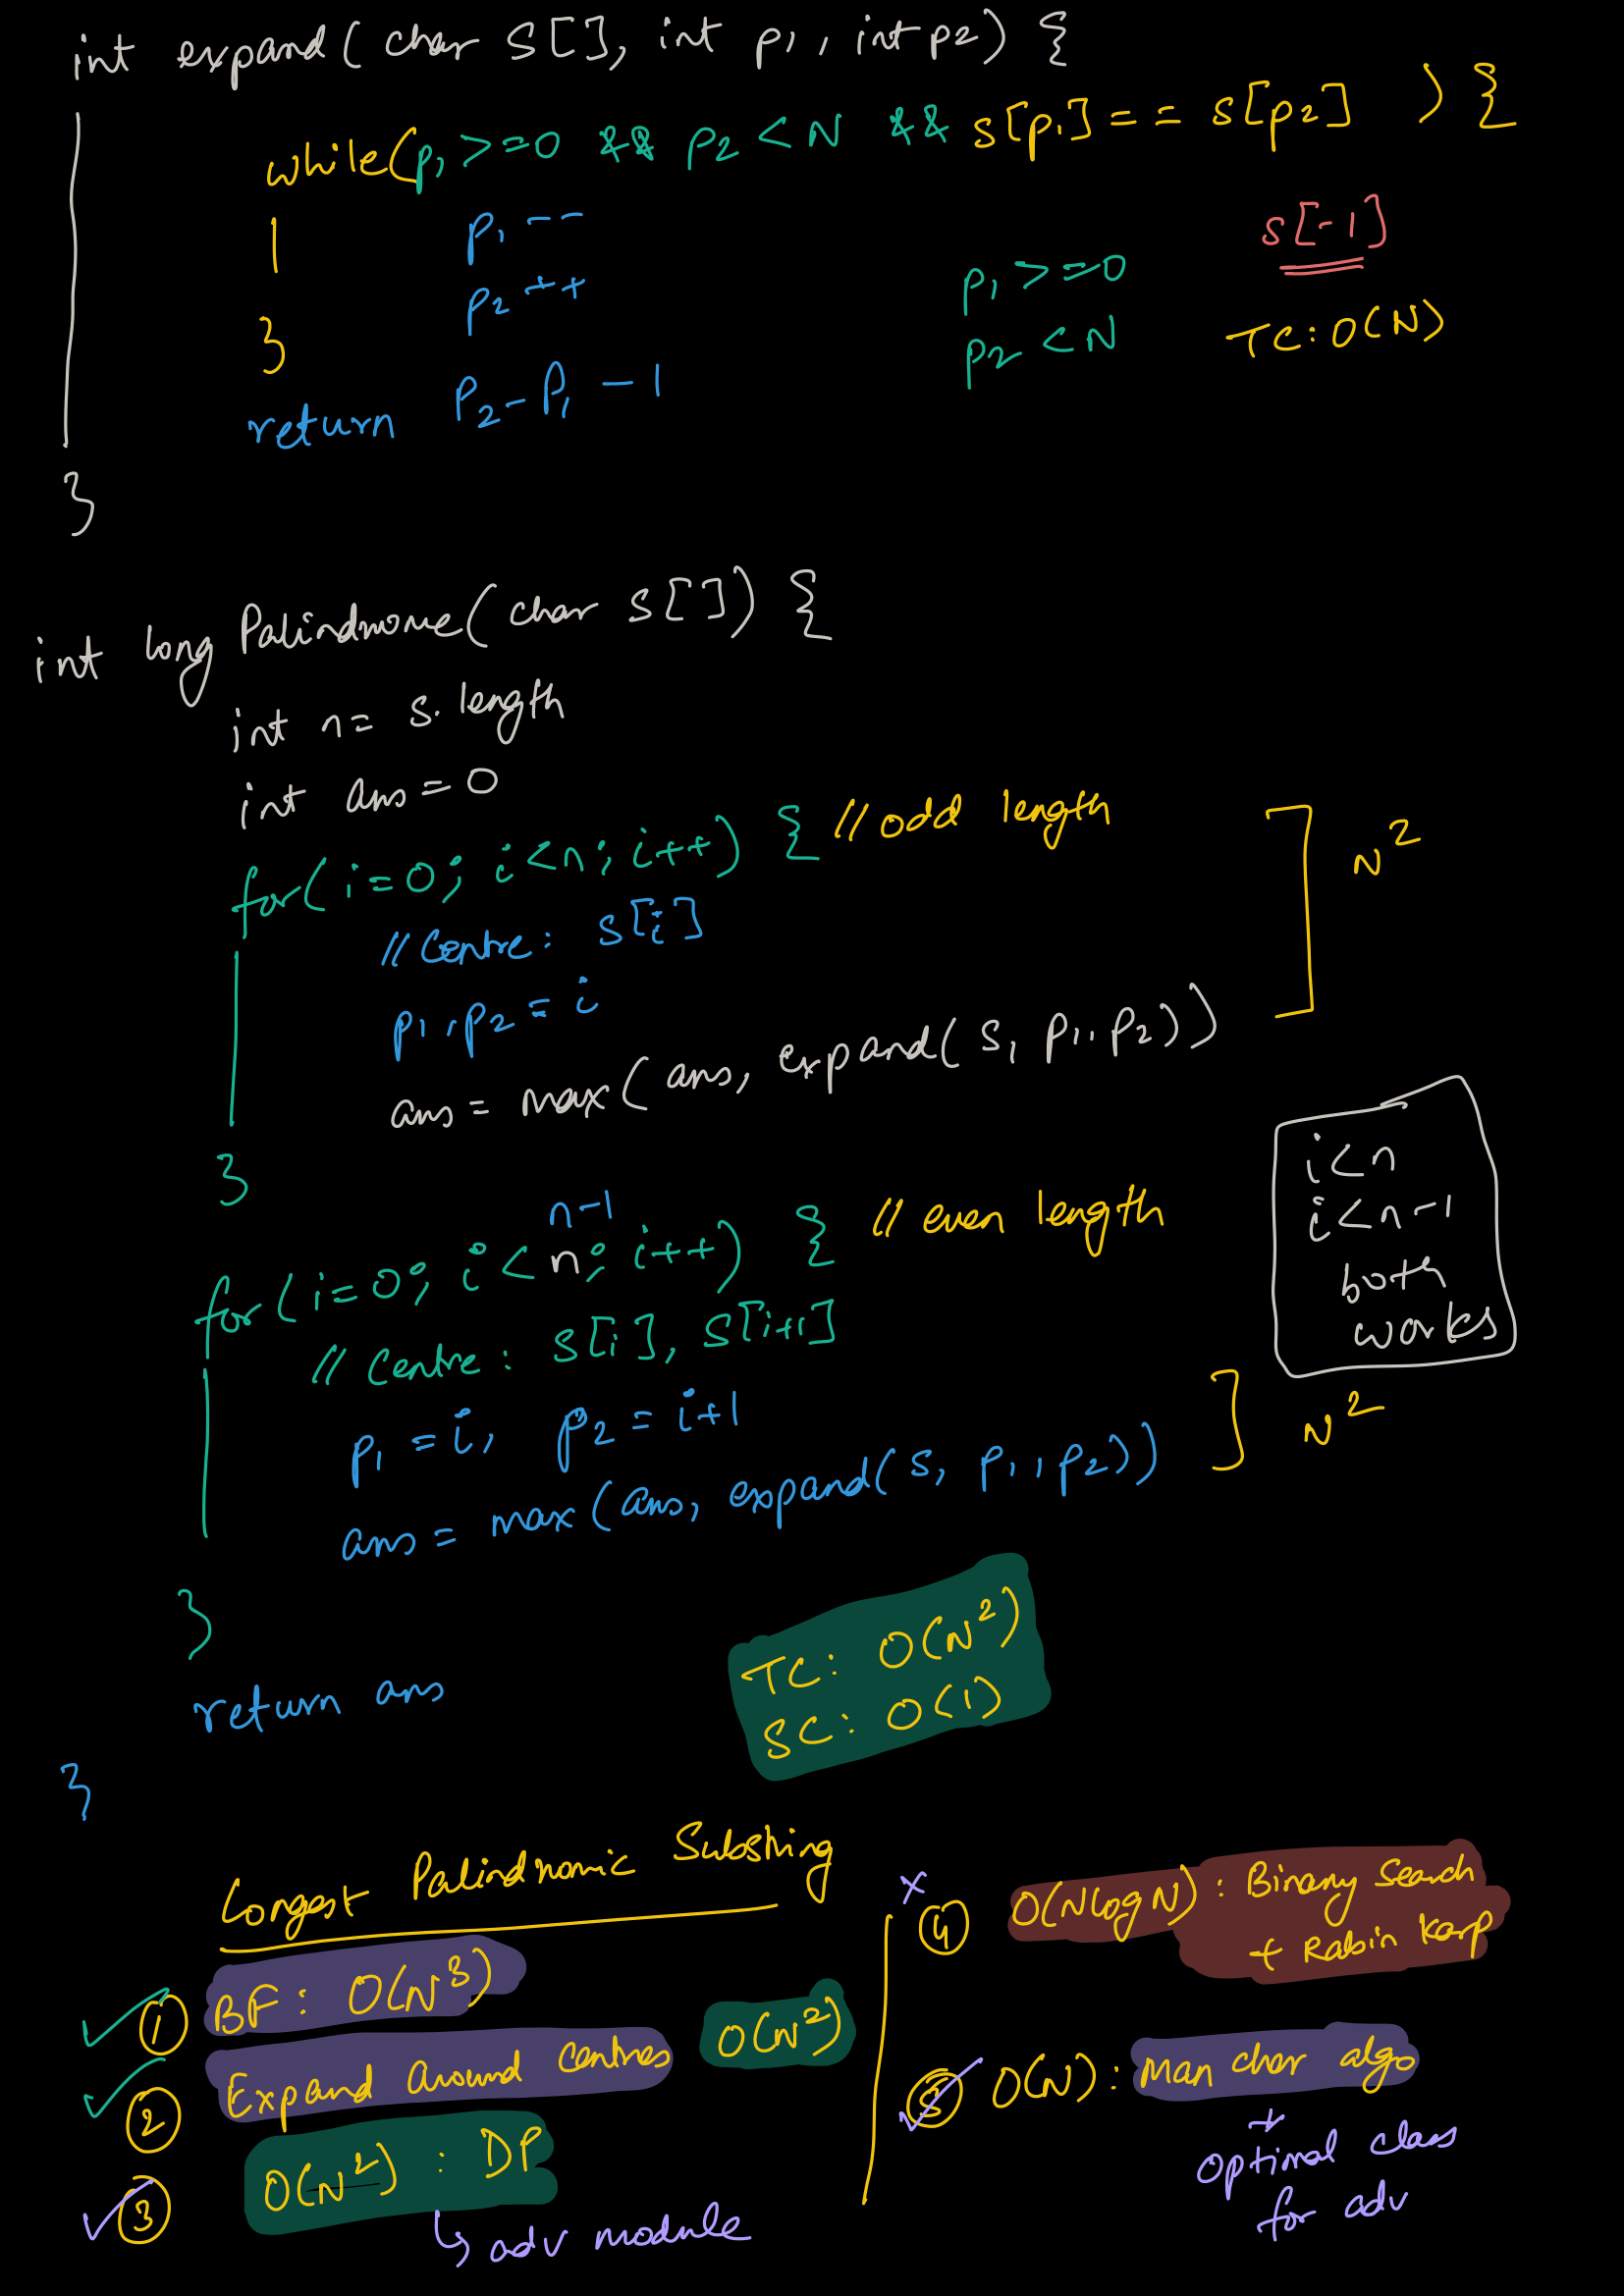 int expand( char S[], int p1, int p2) {
while( p1 >=0 && p2 < N && s[p1] == s[p2] ) {
p1 --
s[-1]
p2 ++
p1 >=0
}
p2 < N
TC: O(N)
return p2 - p1 - 1
}
int longPalindrome( char s[]) {
int n = s.length
int ans = 0
for( i=0; i<n; i++) { // odd length
N²
// Centre: s[i]
p1, p2 = i
ans = max( ans, expand( s, p1, p2))
}
n-1
for( i=0; i<n; i++) { // even length
i<n
i<n-1
both
works
// Centre: S[i], S[i+1]
p1 = i, p2 = i+1
N²
ans = max( ans, expand( s, p1, p2))
}
TC: O(N²)
SC: O(1)
return ans
}
Longest Palindromic Substring
1 BF: O(N³)
2 Expand Around Centres O(N²)
3 O(N²) : DP
↳ adv module
x
4 O(NlogN) : Binary Search
+ Rabin Karp
5 O(N) : Man char algo
Optimal class
for adv